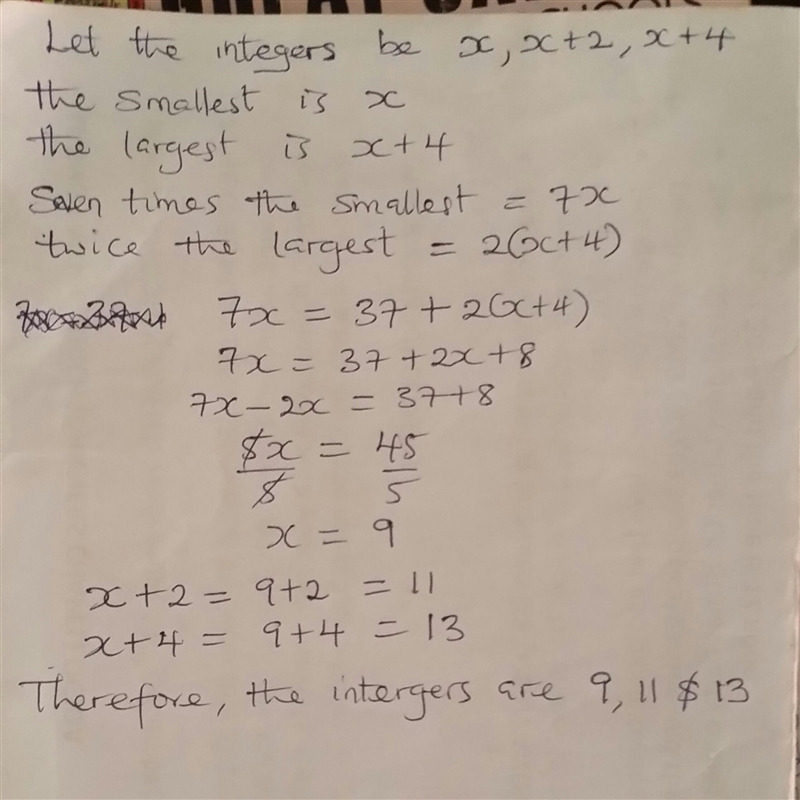 Let the integers be x, x+2, x+4
the smallest is x
the largest is x+4
Seven times the smallest = 7x
twice the largest = 2(x+4)
7x = 37 + 2(x+4)
7x = 37 + 2x + 8
7x - 2x = 37 + 8
5x/5 = 45/5
x = 9
x+2 = 9+2 = 11
x+4 = 9+4 = 13
Therefore, the intergers are 9, 11 $ 13